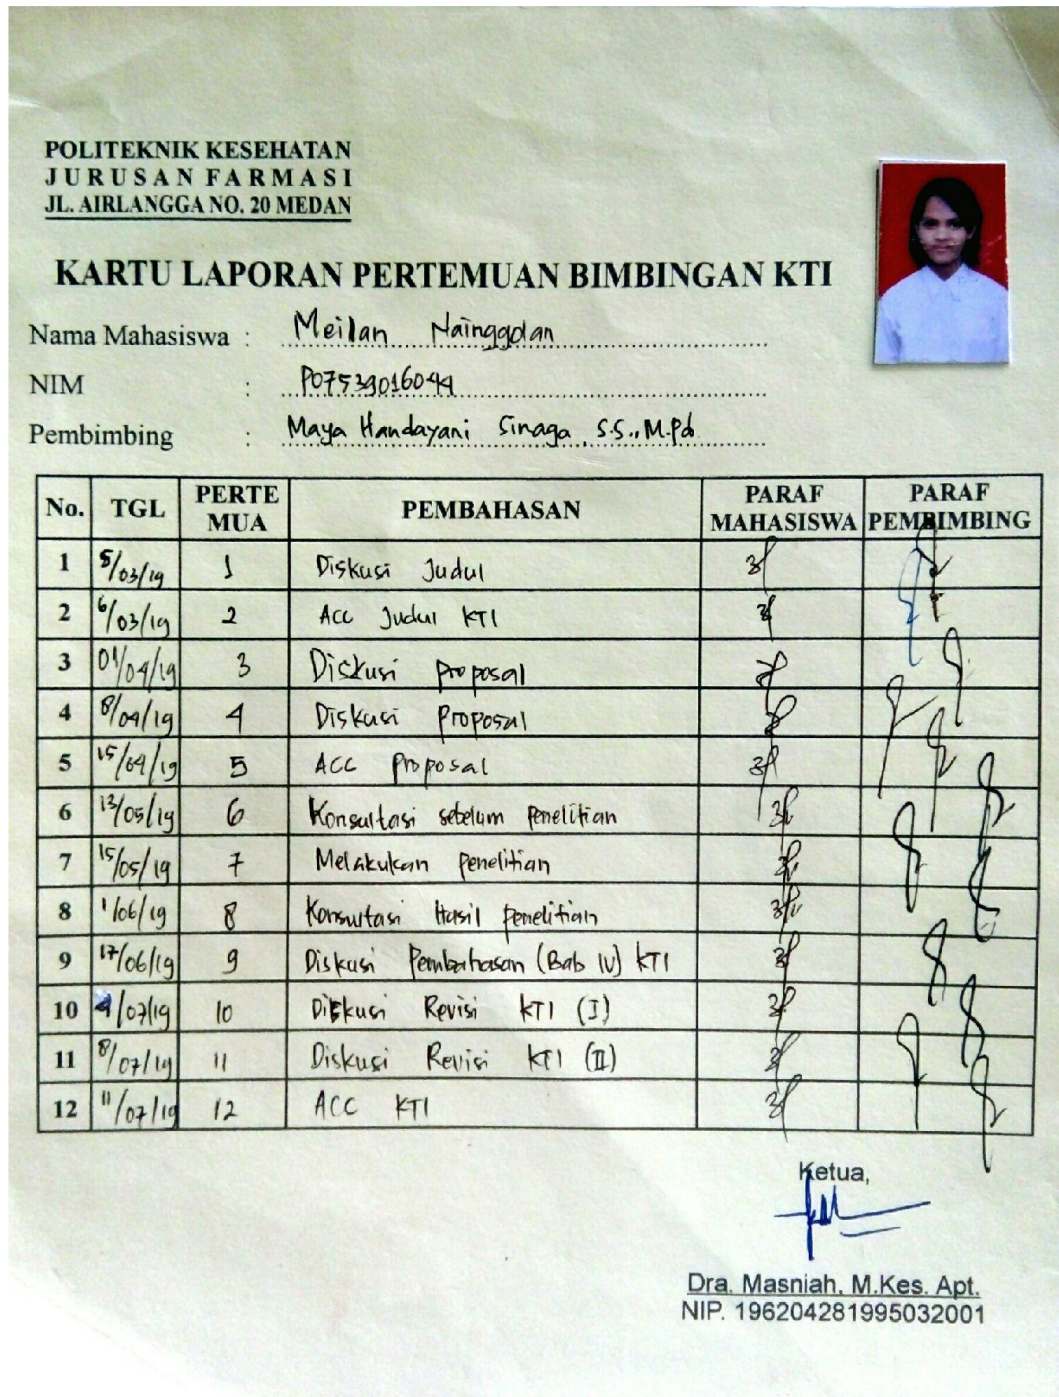 POLITEKNIK KESEHATAN
JURUSAN FARMASI
JL. AIRLANGGA NO. 20 MEDAN
KARTU LAPORAN PERTEMUAN BIMBINGAN KTI
Nama Mahasiswa : Meilan Nainggolan
NIM : P07539016044
Pembimbing : Maya Handayani Sinaga, S.S., M.Pd
No. TGL PERTE MUA PEMBAHASAN PARAF MAHASISWA PARAF PEMBIMBING
1 5/03/19 1 Diskusi Judul
2 6/03/19 2 Acc Judul KTI
3 01/04/19 3 Diskusi proposal
4 8/04/19 4 Diskusi Proposal
5 15/04/19 5 ACC Proposal
6 13/05/19 6 Konsultasi sebelum Penelitian
7 15/05/19 7 Melakukan penelitian
8 1/06/19 8 Konsultasi Hasil penelitian
9 17/06/19 9 Diskusi Pembahasan (Bab IV) KTI
10 4/07/19 10 Diskusi Revisi KTI (I)
11 8/07/19 11 Diskusi Revisi KTI (II)
12 11/07/19 12 ACC KTI
Ketua,
Dra. Masniah, M.Kes. Apt.
NIP. 196204281995032001